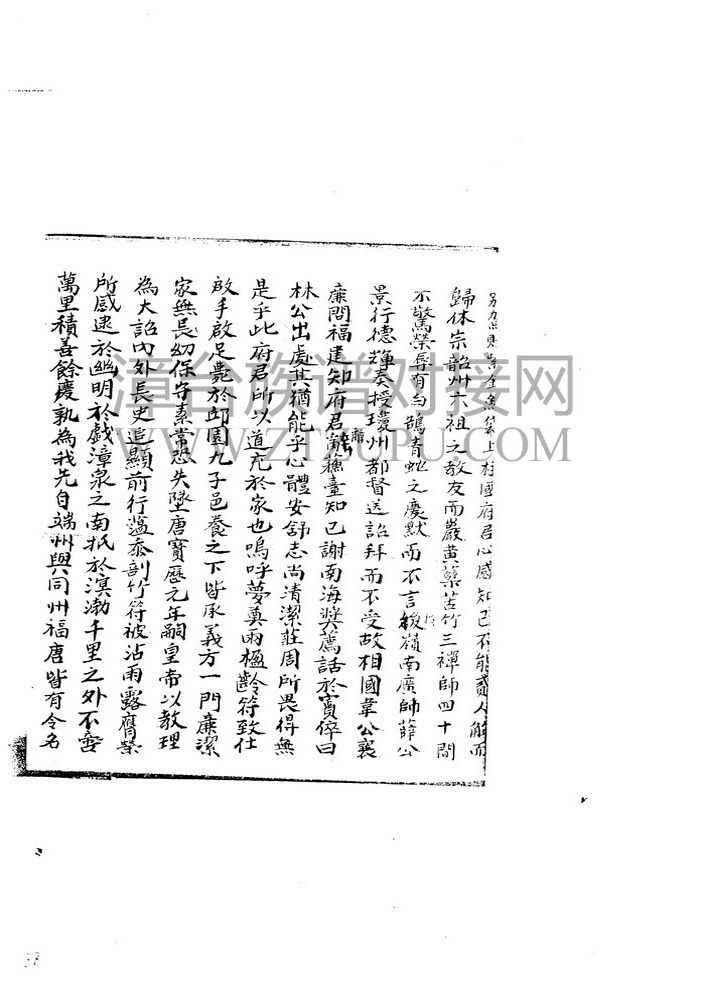 金魚袋上柱國府君心感知己不能貳人解而
歸休宗韶州六祖之教友而嚴黃蘗苦竹三禪師四十間
不驚榮辱有白鵲青蛇之慶默而不言後嶺南廣師薛公
景行德輝奏授瓊州都督送詔拜而不受故相國韋公襄
廉問福建知府君寓穗臺知己謝南海獎薦話於賓倅曰
林公出處其猶能乎心體安舒志尚清潔莊周所畏得無
是乎此府君所以道充於家也嗚呼夢奠兩楹齡符致仕
啟手啟足薨於邱園九子邑養之下皆承義方一門廉潔
家無長幼保守素常恐失墜唐寶曆元年嗣皇帝以教理
為大詔內外長史追顯前行蓋忝剖竹符被沾雨露膺榮
所感逮於幽明於戲漳泉之南抵於溟渤千里之外不啻
萬里積善餘慶孰為我先自端州與同州福唐皆有令名
漳台族谱对接网
WWW.ZTZUPU.COM
38